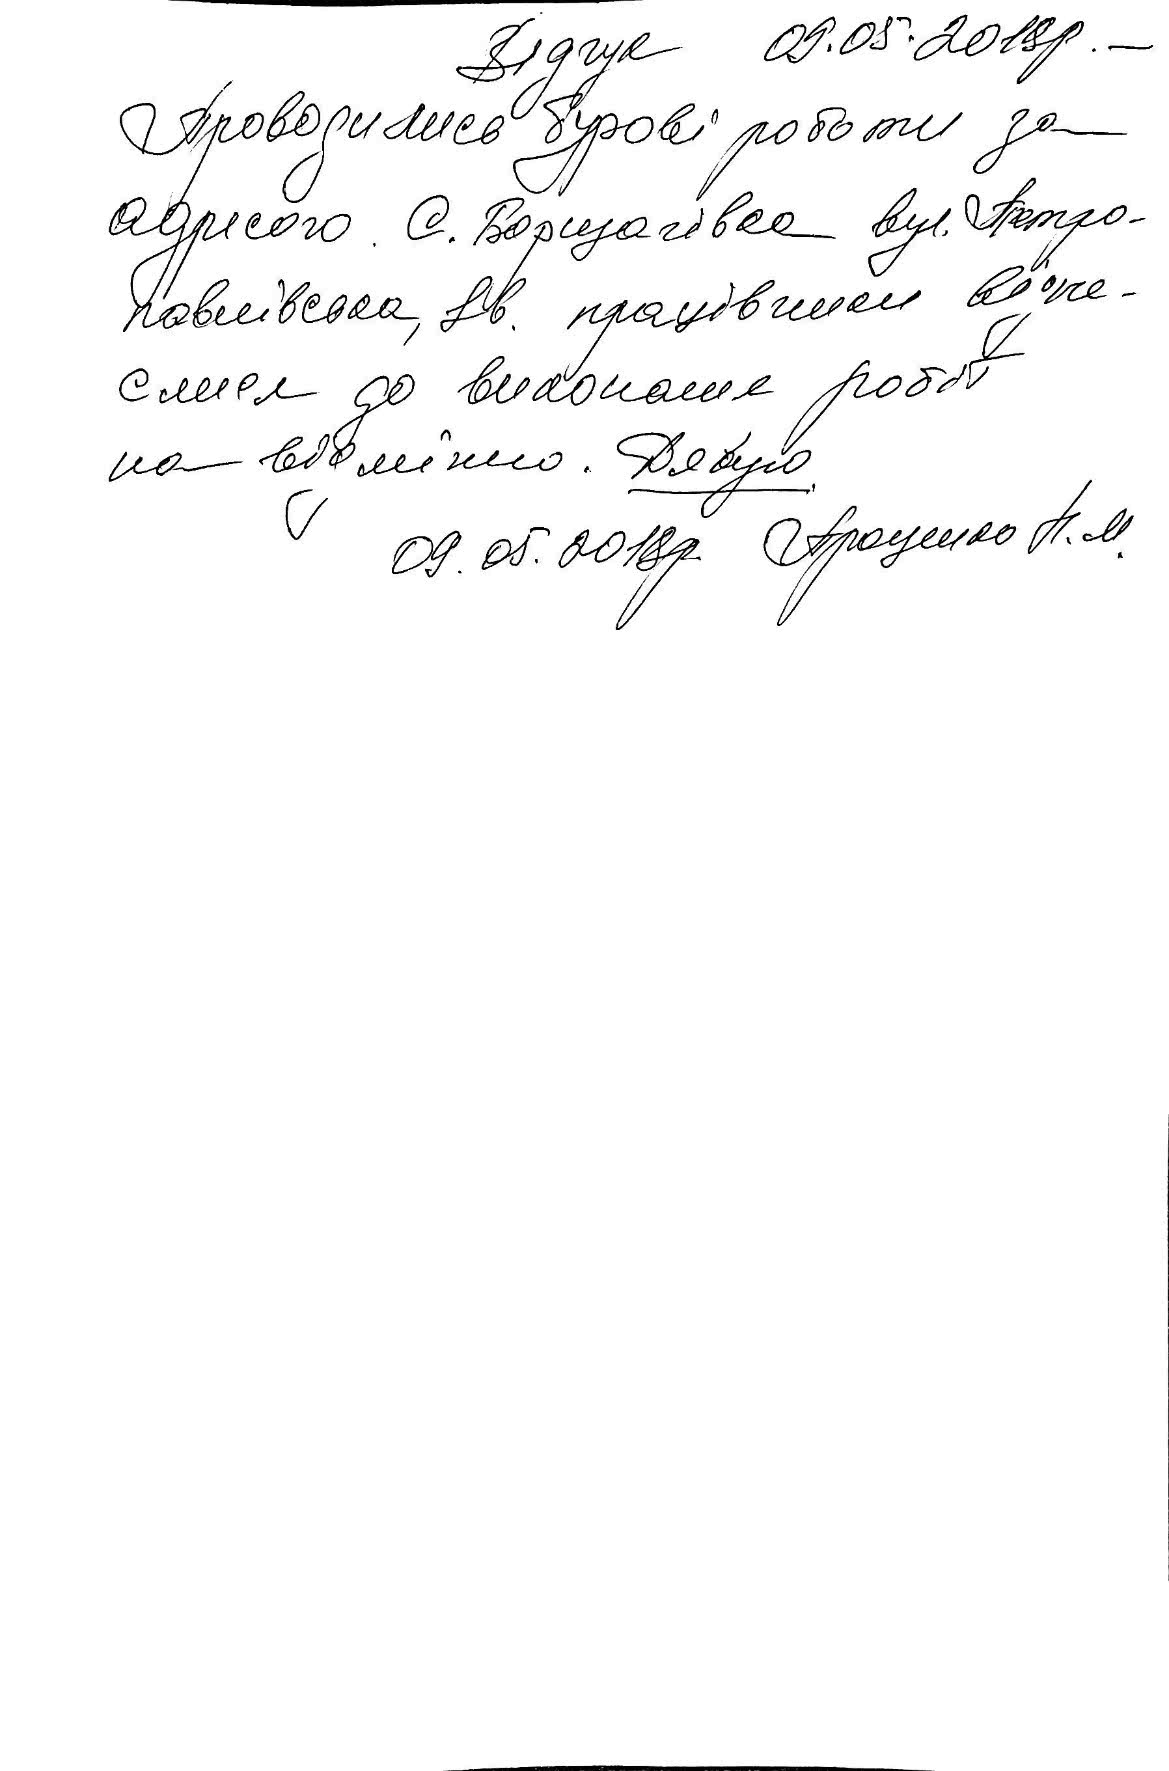 Відгук 09.05.2018р. –
Проводились бурові роботи за
адресою. С. Борщагівка вул. Петро-
павлівська, 2в. працівники відне-
слися до виконання робіт
на відмінно. Дякую.
09.05.2018р. Проценко Н.М.